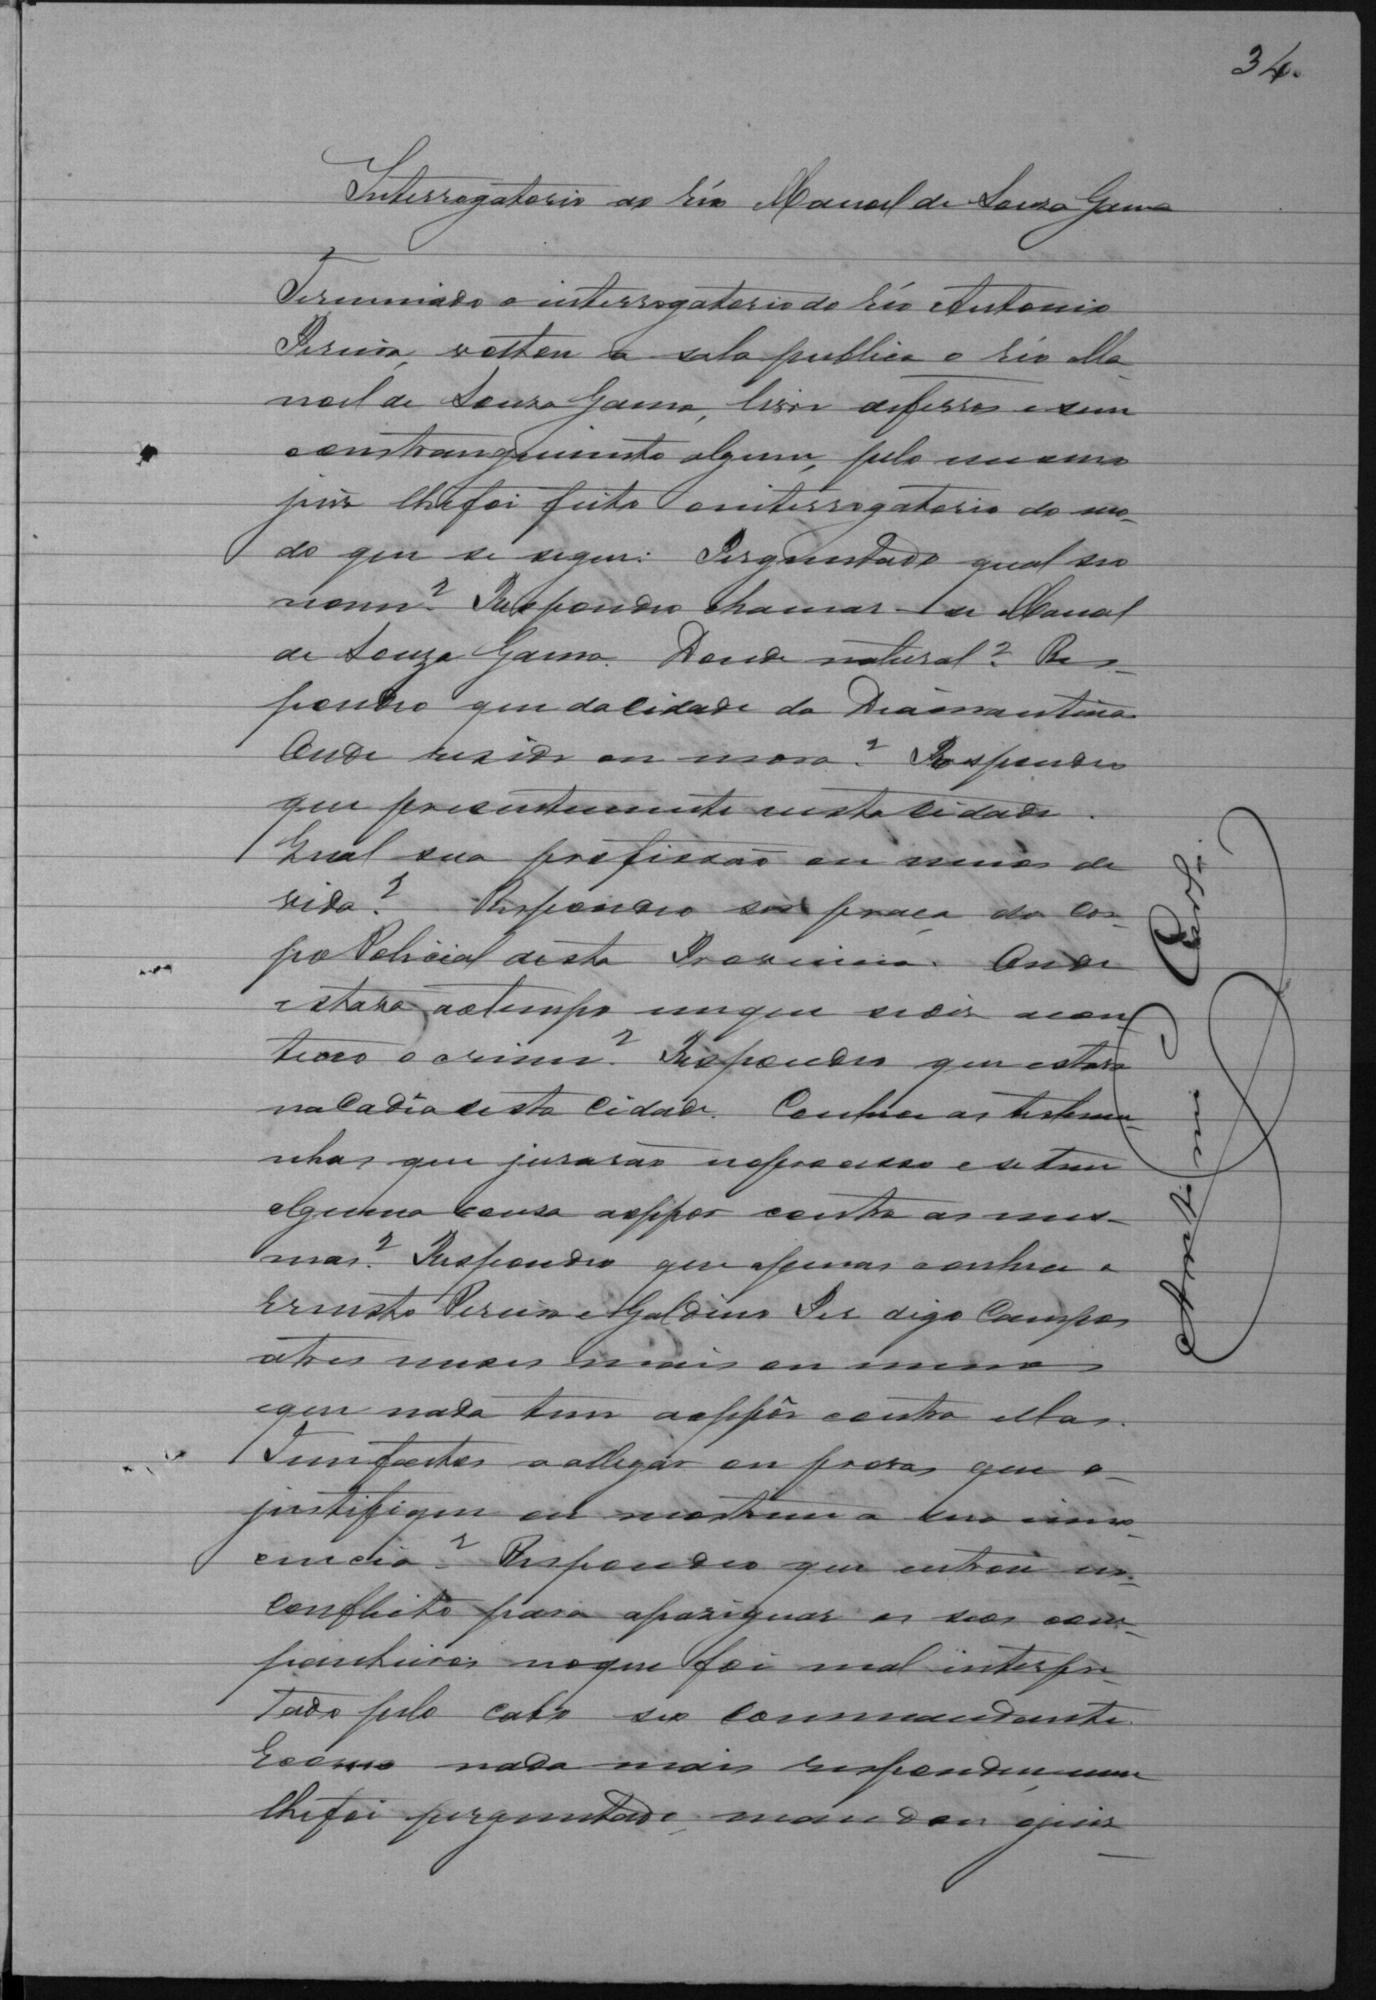 34.
Interrogatorio ao réo Manoel de Souza Gama
Terminado o interrogatorio do réo Antonio
Pereira, voltou a sala publica o réo Ma-
noel de Souza Gama, livre de ferros e sem
constrangimento algum, pelo mesmo
juiz lhe foi feito o interrogatorio do mo-
do que se segue: Perguntado qual seo
nome? Respondeo chamar-se Manoel
de Souza Gama. Donde natural? Res-
pondeo que da Cidade da Diamantina
Onde reside ou mora? Respondeo
que presentemente nesta Cidade.
Qual sua profissão ou meios de
vida? Respondeo ser praça do Cor-
po Policial desta Provincia. Onde
estava ao tempo em que se diz acon-
teceo o crime? Respondeo que estava
na Cadêa desta Cidade. Conhece as testemu-
nhas que jurarão no processo e se tem
alguma cousa a oppor contra as mes-
mas? Respondeo que apenas conhece a
Ernesto Pereira e Galdino Per digo Campos
a tres mezes mais ou menos
e que nada tem a oppôr contra ellas.
Tem factos a allegar ou provas que o
justifiquem ou mostrem a sua inno-
cencia? Respondeo que entrou no
conflicto para apaziguar os seos com-
panheiros no que foi mal interpre-
tado pelo cabo seo commandante.
E como nada mais respondeu, nem
lhe foi perguntado, mandou o juiz
Antonio